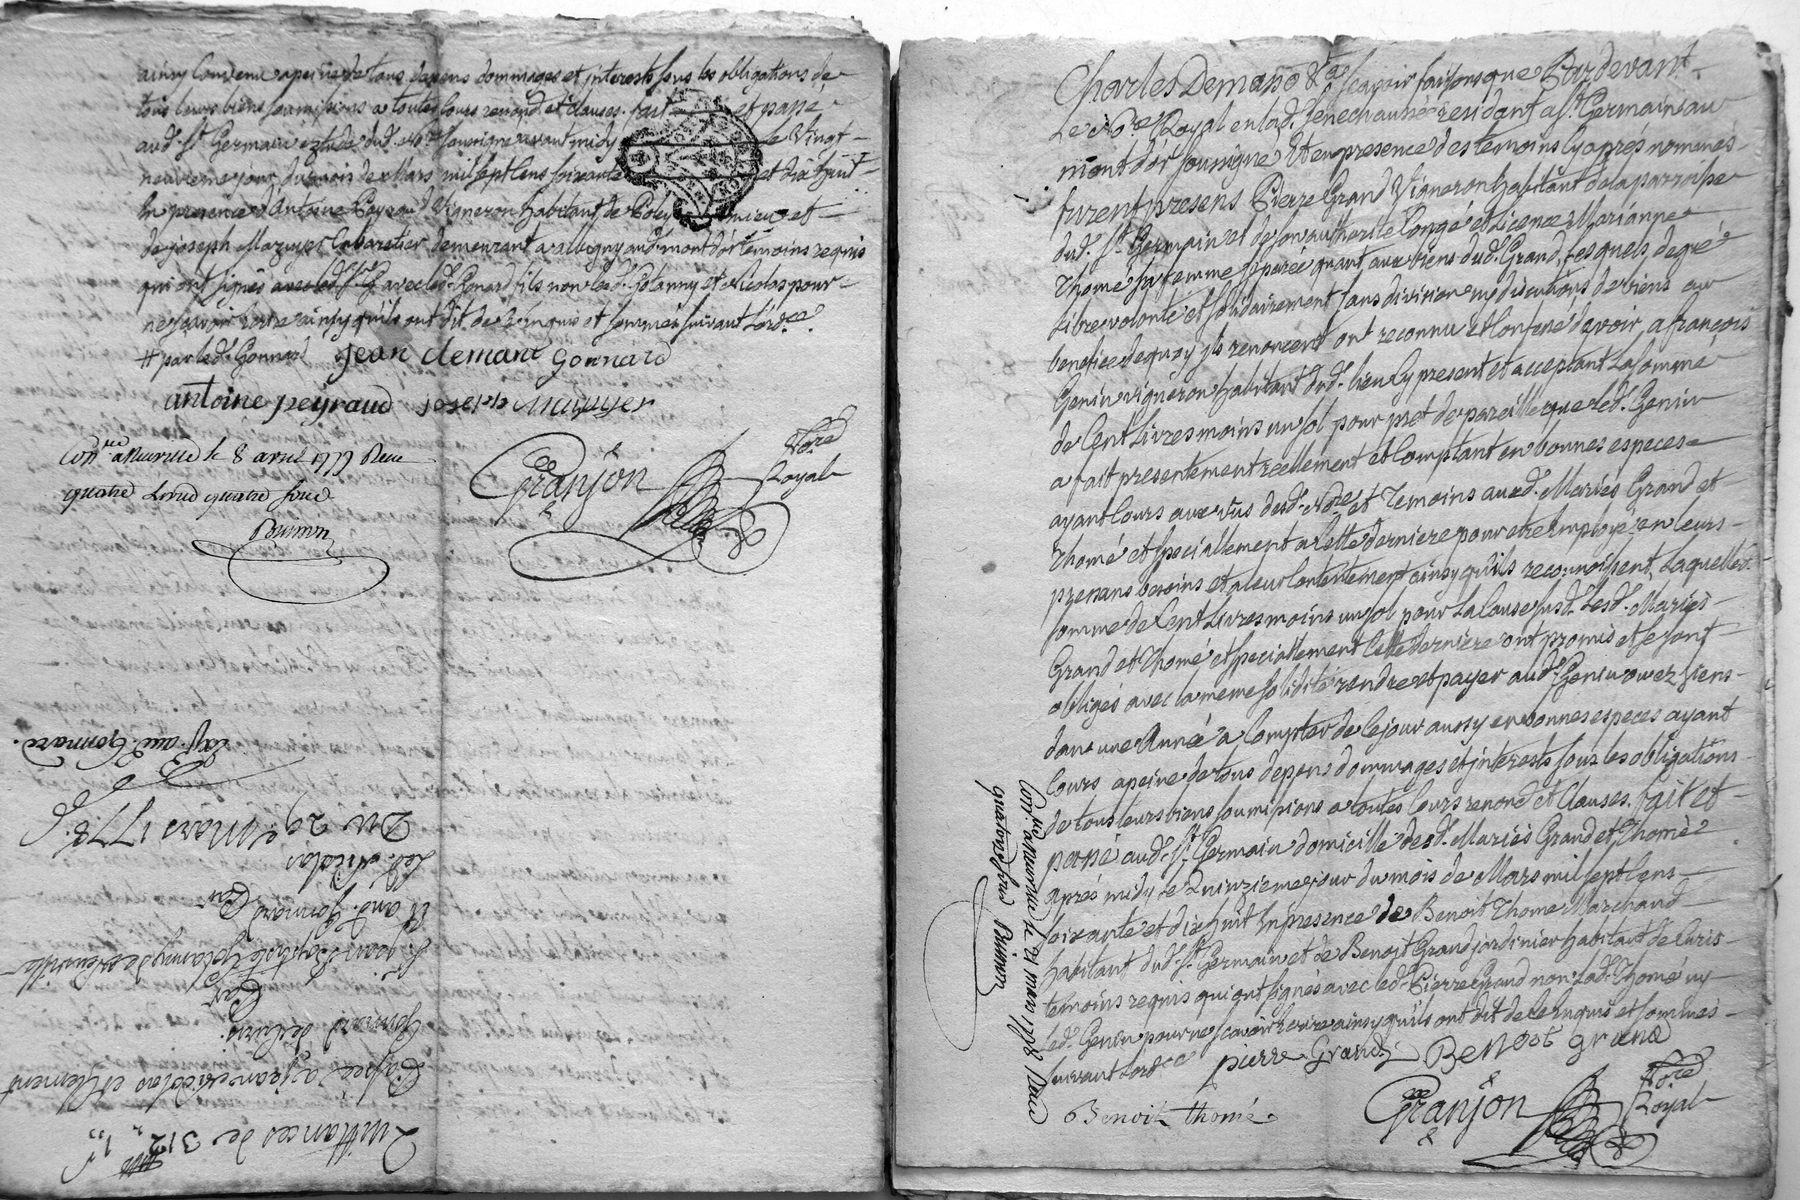 ainsy Convenu a peine de tous depens dommages et interests sous les obligations de
tous leurs biens soumissions a toutes Cours renond. et clauses. fait et passé
aud. St. Germain etude dud. No.re soussigné avant midy le Vingt
neuvieme jour du mois de Mars mil sept Cens soixante et dix huit
En presence d'Antoine Peyraud Vigneron habitant de Poley et
de joseph Mazuyer Cabaretier demeurant a albigny au mont d'or temoins requis
qui ont signés avec led. Gonard fils non led. Golanny et Nicolas pour
ne scavoir ecrire ainsy qu'ils ont dit de ce enquis et sommés suivant l'ord.ce
# par led. Gonnard jean clemant gonnard
antoine peyraud joseph mazuyer
Con.lé a Neuville le 8 avril 1778 Reçu
quatre Livres quatre sous
Brunon
Granjon No.re
Royal
Quittances de 312 "
Passée a jean Nicolas et Clement
Gonnard de Curis
Par
S. jean Baptiste Golanny de Neuville
Et and. Gonnard Par
led. Nicolas
Du 29 Mars 1778.
Exp.é aud. Gonnard.
Charles Demaso &.a scavoir faisons que Pardevant
Le No.re Royal en lad. Senechaussée resident a St. Germain au
mont d'or soussigné Et en presence des temoins cy aprés nommés
furent presens Pierre Grand Vigneron habitant de la parroisse
dud. St. Germain et de son authorité Congé et Licence Marianne
Thomé sa femme separée quant aux biens dud. Grand, Lesquels, de gré
Libre volonté et solidairement sans division ny discutions de biens au
benefice de quoy ils renoncent ont reconnu et Confessé devoir a françois
Genin vigneron habitant dud. lieu Cy present et acceptant La somme
de Cent Livres moins un sol pour pret de pareille que led. Genin
a fait presentement reellement et Comptant en bonnes especes
ayant Cours aux vûs desd. No.re et Temoins auxd. Mariés Grand et
Thomé et speciallement a Cette derniere pour etre Employé en leurs
presans besoins et a leur Contentement ainsy qu'ils reconnoissent, Laquelle
somme de Cent Livres moins un sol pour La Cause susd. Lesd. Mariés
Grand et Thomé et speciallement Cette derniere ont promis et se sont
obligés avec la meme solidité rendre et payer aud. Genin ou ez siens
dans une Année a Compter de Ce jour aussy en bonnes especes ayant
Cours a peine de tous depens dommages et interests sous les obligations
de tous leurs biens soumissions a toutes Cours renond. et Clauses. fait et
passé aud. St. Germain domicille desd. Mariés Grand et Thomé
aprés midy Le Quinzieme jour du mois de Mars mil sept Cens
soixante et dix huit En presence de Benoit Thomé Marchand
habitant dud. St. Germain et de Benoit Grand jardinier habitant de Curis
temoins requis qui ont signés avec led. Pierre Grand non Lad. Thomé ny
led. Genin pour ne scavoir Ecrire ainsy qu'ils ont dit de Ce enquis et sommés
suivant l'ord.ce pierre Grand Benoit grand
Benoit thomé
Granjon No.re
Royal
Con.lé a Neuville le 21 mars 1778 Reçu
quatorze sous Brunon